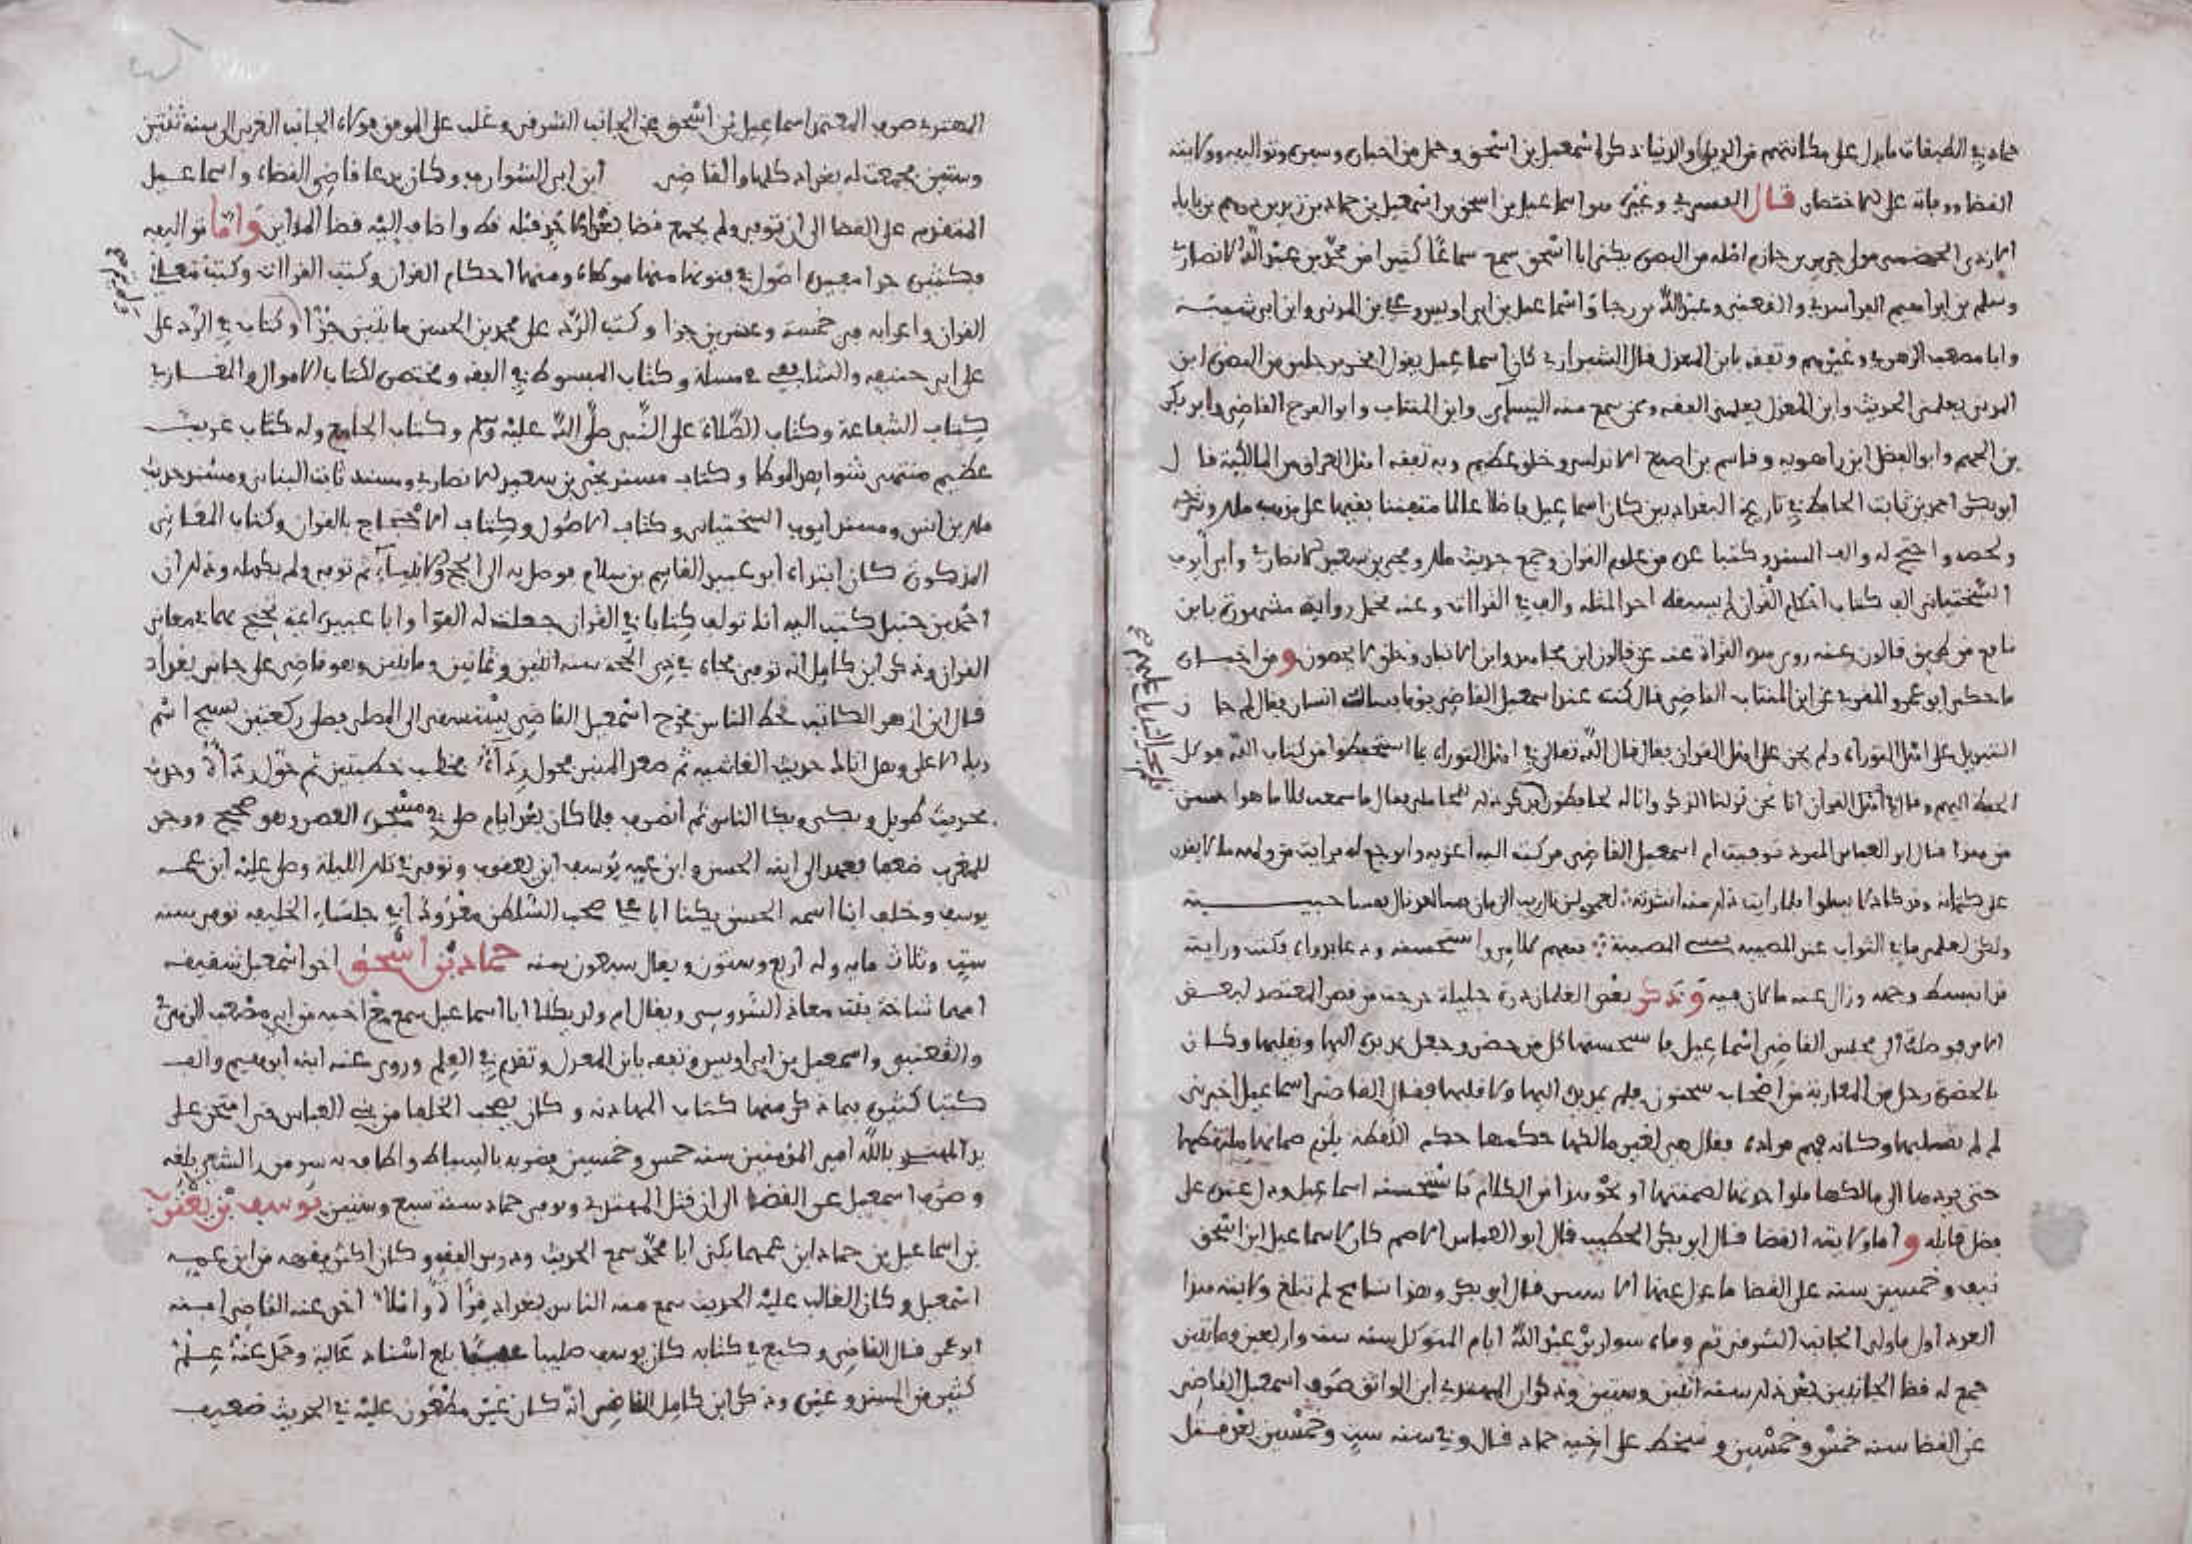 حماد في الطبقات ما يدل على مكانتهم من الدين والدنيا ذكر اسمعيل بن اسحق وجمل من اخباره وسيره وتواليفه وولايته
القضا ووفاته على اختصار قال الفسري وغيره هو اسماعيل بن اسحق بن اسمعيل بن حماد بن زيد بن درهم بن بابك
الازدي الجهضمي مولى جرير بن حازم اصله من البصرة يكنى ابا اسحق سمع سماعا كثيرا من محمد بن عبد الله الانصاري
وسلم بن ابراهيم الفراهيدي والقعنبي وعبد الله بن رجا واسماعيل بن ابي اويس وعلي بن المديني وابن ابي شيبة
وابا مصعب الزهري وغيرهم وتفقه بابن المعذل قال الشيرازي كان اسماعيل يقول افخر برجلين من البصرة ابن
المديني يعلمني الحديث وابن المعذل يعلمني الفقه وممن سمع منه النيسابي وابن المنتاب وابو الفرج القاضي وابو بكر
بن الجهم وابو الفضل ابن راهويه وقاسم بن اصبغ الاندلسي وخلق عظيم وبه تفقه اهل العراق من المالكية قال
ابو بكر احمد بن ثابت الحافظ في تاريخ البغداديين كان اسماعيل فاضلا عالما متفننا فقيها على مذهب ملك وشرحه
ولخصه واحتج له والف المسند وكتبا عدة من علوم القران وجمع حديث ملك ويحيى بن سعيد الانصاري وابي ايوب
السختياني الف كتاب احكام القران لم يسبقه احد لمثله والف في القراات وعنه تحمل رواية مشهورة يا ابن
نافع من طريق قالون وعنه روى هذه القراة عنه عن قالون ابن مجاهد وابن الانباري وخلق لا يحصون ومن اخباره
ما حكى ابو عمرو المقري عن ابن المنتاب القاضي قال كنت عند اسمعيل القاضي يوما فساله انسان فقال لم جاز
التبديل على اهل التوراة ولم يجز على اهل القران فقال قال الله تعالى في اهل التوراة بما استحفظوا من كتاب الله فوكل
الحفظ اليهم وقال في اهل القران انا نحن نزلنا الذكر وانا له لحافظون فذكر ذلك للمحاملي فقال ما سمعت كلاما هو احسن
من هذا قال ابو العباس المبرد توفيت ام اسمعيل القاضي فركبت اليه اعزيه واتوجع له فرايت من ولهه ملا يقدر
على كتمانه
ولكن لعلمي ما في الثواب عند المصيبة نسيت المصيبة ففهم كلامي واستحسنه ودعا بدواة وكتب ورايته
قد انبسط وجهه وزال عنه ما كان فيه وتذكر
الامر فوصلت الى مجلس القاضي اسماعيل فاستحسنها كل من حضر وجعل يمد يده اليها ويقلبها وكان
بالحضرة رجل من المغاربة من اصحاب سحنون فلم يمد يده اليها ولا قلبها فقال القاضي اسماعيل اخبرني
لم لم تقبلها وكانه فهم مراده فقال هي لغير مالكها حكمها حكم اللقطة يلزم ضمانها ملتقطها
حتى يردها الى مالكها فلو اخذتها لضمنتها او نحو هذا من الكلام فاستحسنه اسماعيل ودل عنده على
فضل قائله واما ولايته القضا قال ابو بكر الخطيب قال ابو العباس الاصم كان اسماعيل ابن اسحق
نيف وخمسين سنه على القضا ما عزل عنها الا سنتين قال ابو بكر وهذا تسامح لم تبلغ ولايته هذا
العدد اول ما ولي الجانب الشرقي ثم وفاة سوار بن عبد الله ايام المتوكل سنه ست واربعين ومايتين
جمع له قضا الجانبين بعد ذلك سنه اثنين وستين وذكر ان المهتدي ابن الواثق صرف اسمعيل القاضي
عن القضا سنه خمس وخمسين وسخط على اخيه حماد قال وفي سنه ست وخمسين بعد قتل
المهتدي صرف المعتمد اسماعيل بن اسحق عن الجانب الشرقي وغلب على الموفق فولاه الجانب الغربي الى سنه ثنتين
وستين فجمعت له بغداد كلها والقاضي ابن ابي الشوارب وكان يدعا قاضي القضاة واسماعيل
المتقدم على القضا الى ان توفي ولم يجمع قضا بغداد لاحد قبله قط واضاف اليه قضا المداين واما تواليفه
فكثيرة جدا مفيدة اصول في فنونها منها موطاه ومنها احكام القران وكتب القراات وكتب معاني
القران واعرابه في خمسة وعشرين جزا وكتب الرد على محمد بن الحسن مايتين جزا وكتاب في الرد على
على ابي حنيفه والشافعي في مسلة وكتاب المبسوط في الفقه ومختصره لكتاب الاموال والمغازي
كتاب الشفاعة وكتاب الصلاة على النبي صلى الله عليه وسلم وكتاب الجامع وله كتاب غريب
عظيم منتهى شواهد الموطا وكتاب مسند يحيى بن سعيد الانصاري ومسند ثابت البناني ومسند حديث
ملك بن انس ومسند ايوب السختياني وكتاب الاصول وكتاب الاحتجاج بالقران وكتاب المعاني
المذكورة كان ابتداه ابو عبيد القاسم بن سلام فوصل به الى الحج والانبياء ثم توفي ولم يكمله وذلك ان
احمد بن حنبل كتب اليه انك تولف كتابا في القران جعلت له الفرا وابا عبيدة ايمة يحتج بهما في معاني
القران وذكر ابن كامل انه توفي فجاة في ذي الحجة سنه اثنين وثمانين ومايتين وهو قاضي على جانبي بغداد
قال ابن ازهر الكاتب قحط الناس فخرج اسمعيل القاضي يستسقي الى المصلى فصلى ركعتين بسبح اسم
ربك الاعلى وهل اتاك حديث الغاشيه ثم صعد المنبر فحول رداءه فخطب خطبتين ثم حول رداءه وحدث
بحديث طويل وبكى وبكا الناس ثم انصرف فلما كان بعد ايام صلى في مسجده العصر وهو صحيح ووجد
للمغرب ضعفا فعهد الى ابنه الحسن وابن عمه يوسف ابن يعقوب وتوفي في تلك الليلة وصلى عليه ابن عمه
يوسف وخلف ابنا اسمه الحسن يكنا ابا علي صحب السلطان معدودا في جلساء الخليفه توفي سنه
ست وثلاث مايه وله اربع وستون ويقال سبعون سنه حماد بن اسحق اخو اسمعيل شقيقه
امهما شاخة بنت معاذ السدوسي ويقال ام ولد يكنا ابا اسماعيل سمع مع اخيه من ابي مصعب الزهري
والقعنبي واسمعيل بن ابي اويس وتفقه بابن المعذل وتقدم في العلم وروى عنه ابنه ابراهيم والف
كتبا كثيرة فيما ذكر منها كتاب المهادنه وكان يصحب الخلفا من بني العباس فمرا متحن على
يد المهتدي بالله امير المؤمنين سنه خمس وخمسين وضربه بالسياط واطاف به
وصرف اسمعيل عن القضا الى ان قتل المهتدي وتوفي حماد سنة سبع وستين يوسف بن يعقوب
بن اسماعيل بن حماد ابن عمهما يكنى ابا محمد سمع الحديث ودرس الفقه وكان اكثر تفقهه من ابن عمه
اسمعيل وكان الغالب عليه الحديث سمع منه الناس ببغداد قراة واملاء اخذ عنه القاضي ابنه
ابو عمر قال القاضي وكيع في كتابه كان يوسف صليبا عفيفا بلغ اسناد عالية وحمل عنه علم
كثير من المسند وغيره وذكر ابن كامل القاضي انه كان غير مطعون عليه في الحديث ضعيف